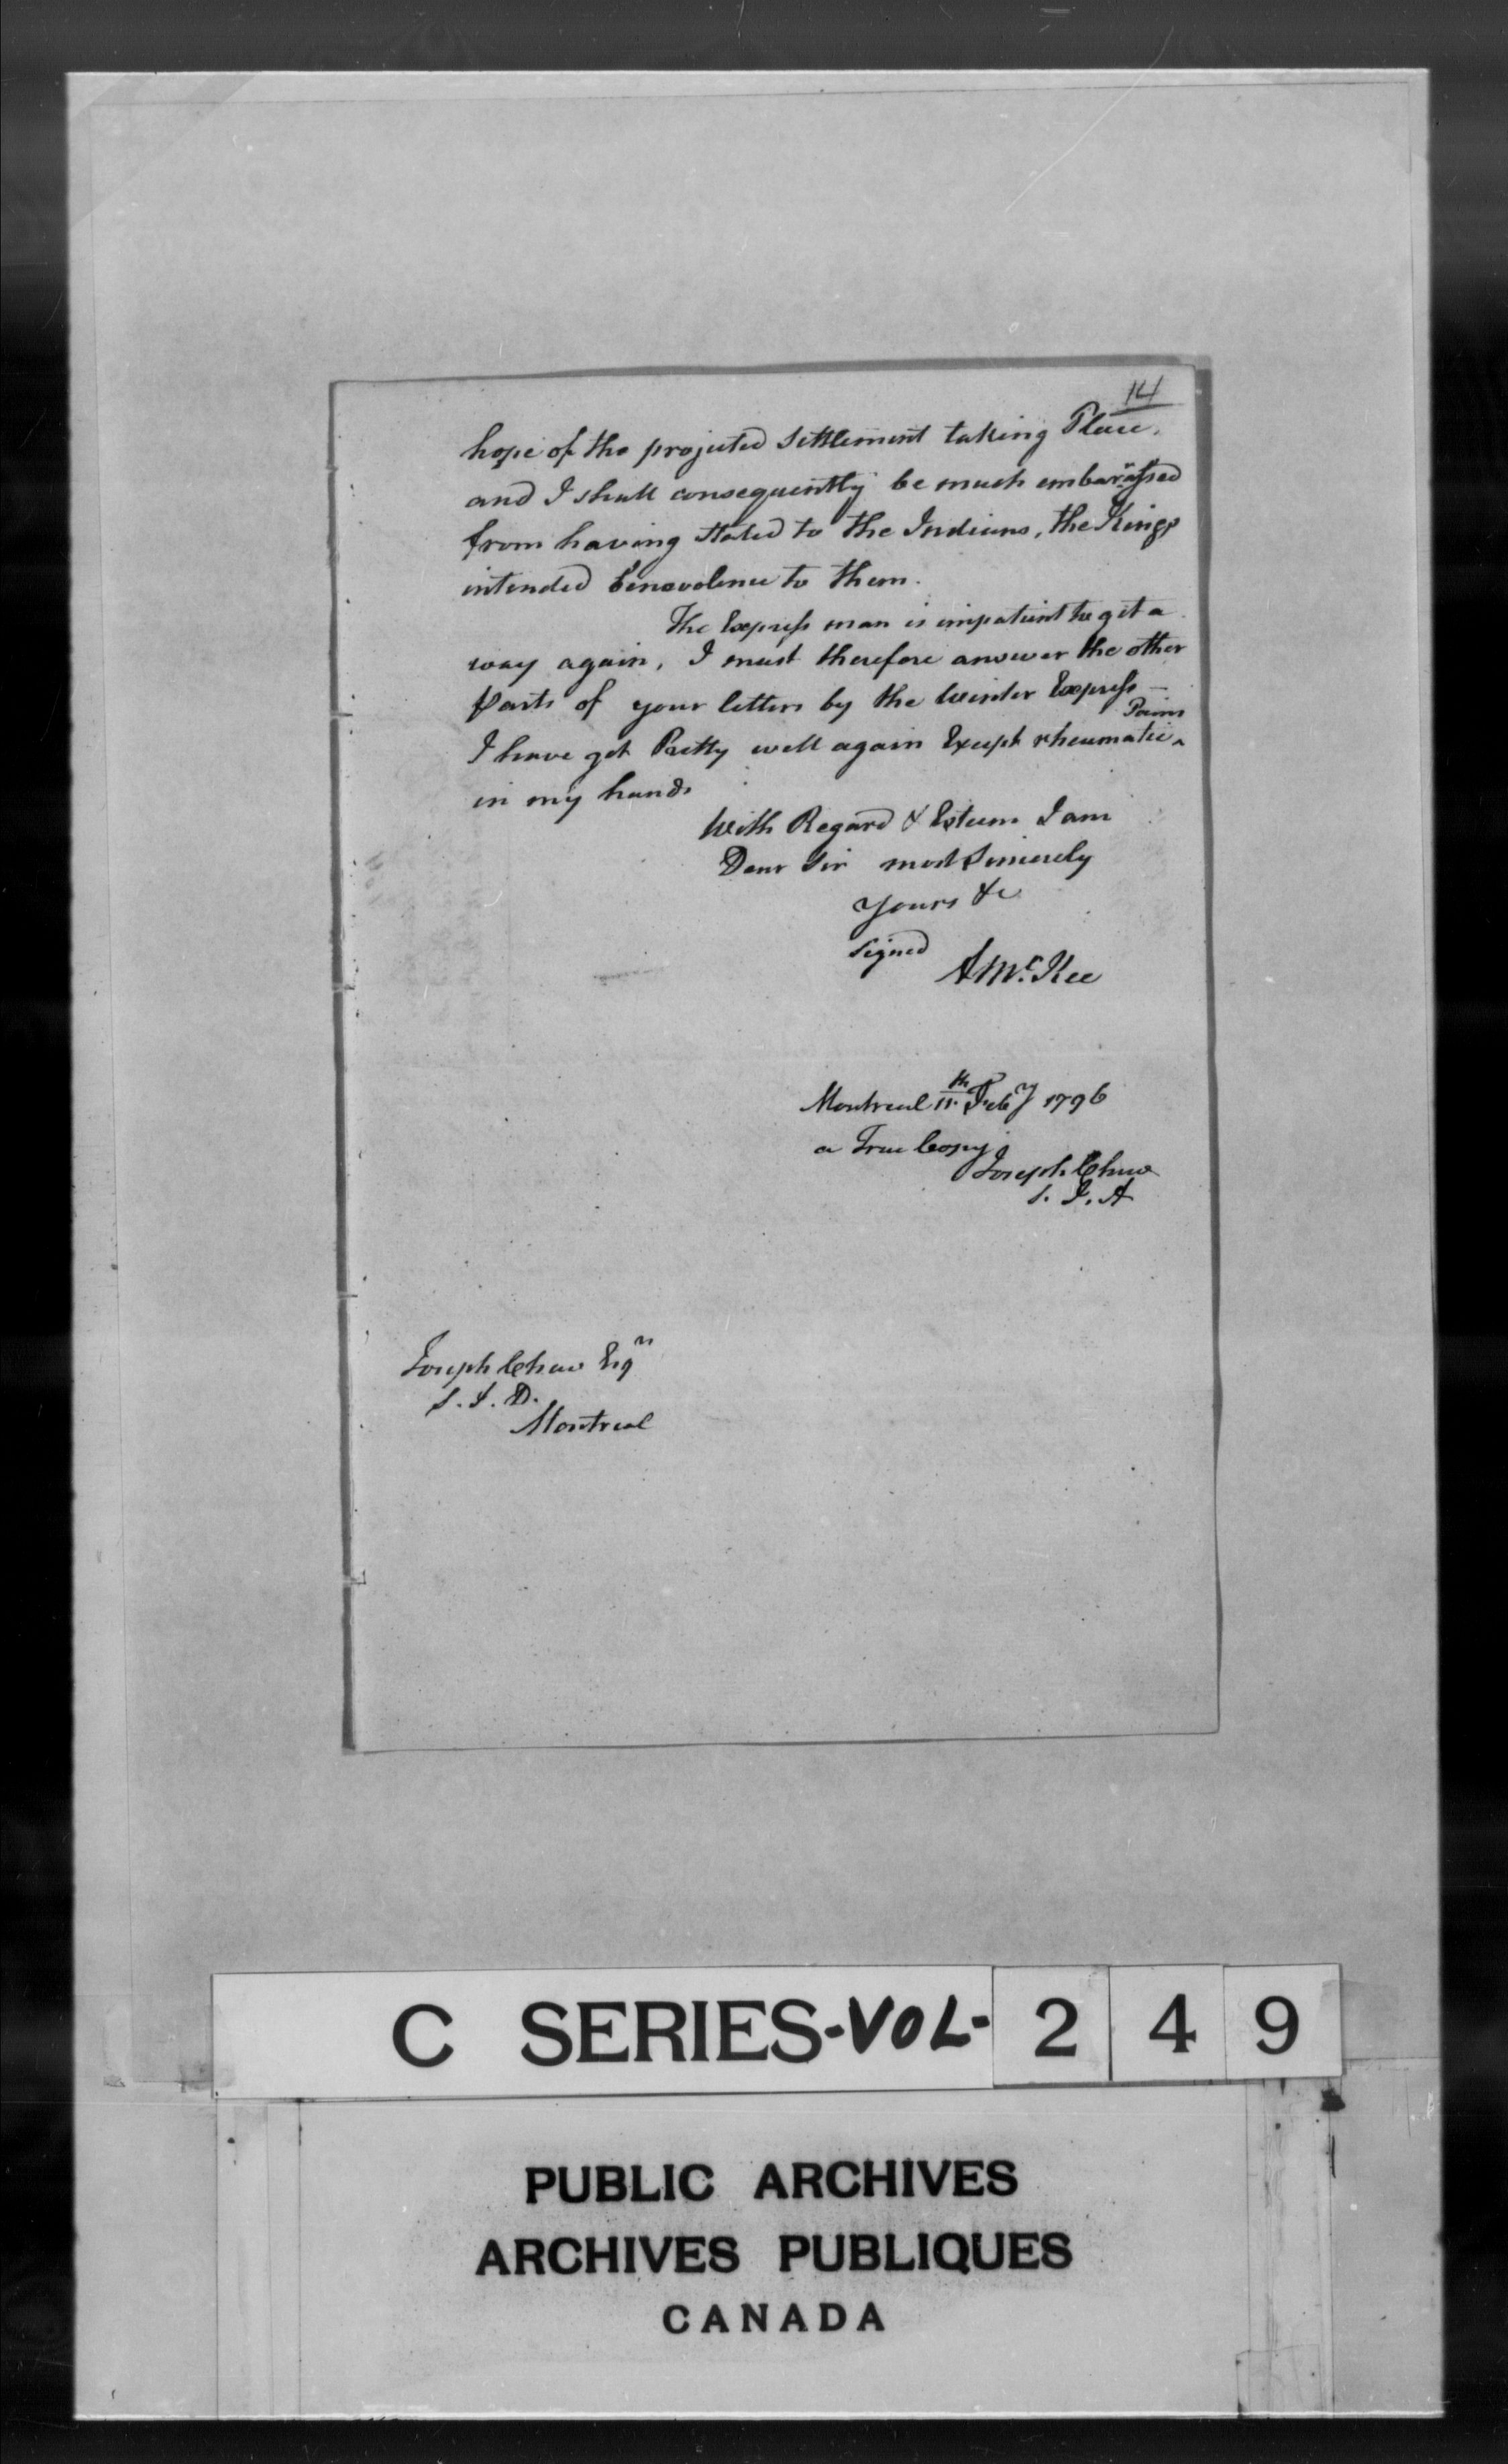 14
hope of the projected Settlement taking Place,
and I shall consequently be much embarrassed
from having stated to the Indians, the Kings
intended benevolence to them.
The Express man is impatient to get a
way again, I must therefore answer the other
parts of your letters by the Winter Express —
I have got Pretty well again Except rheumatic ^ Pains
in my hands
With Regard & Esteem I am
Dear Sir most Sincerely
Yours &c
signed
A McKee
Montreal 11th Feby 1796
a True Copy
Joseph Chew
S. I. A
Joseph Chew Esqr
S. I. D.
Montreal
C SERIES-VOL-249
PUBLIC ARCHIVES
ARCHIVES PUBLIQUES
CANADA